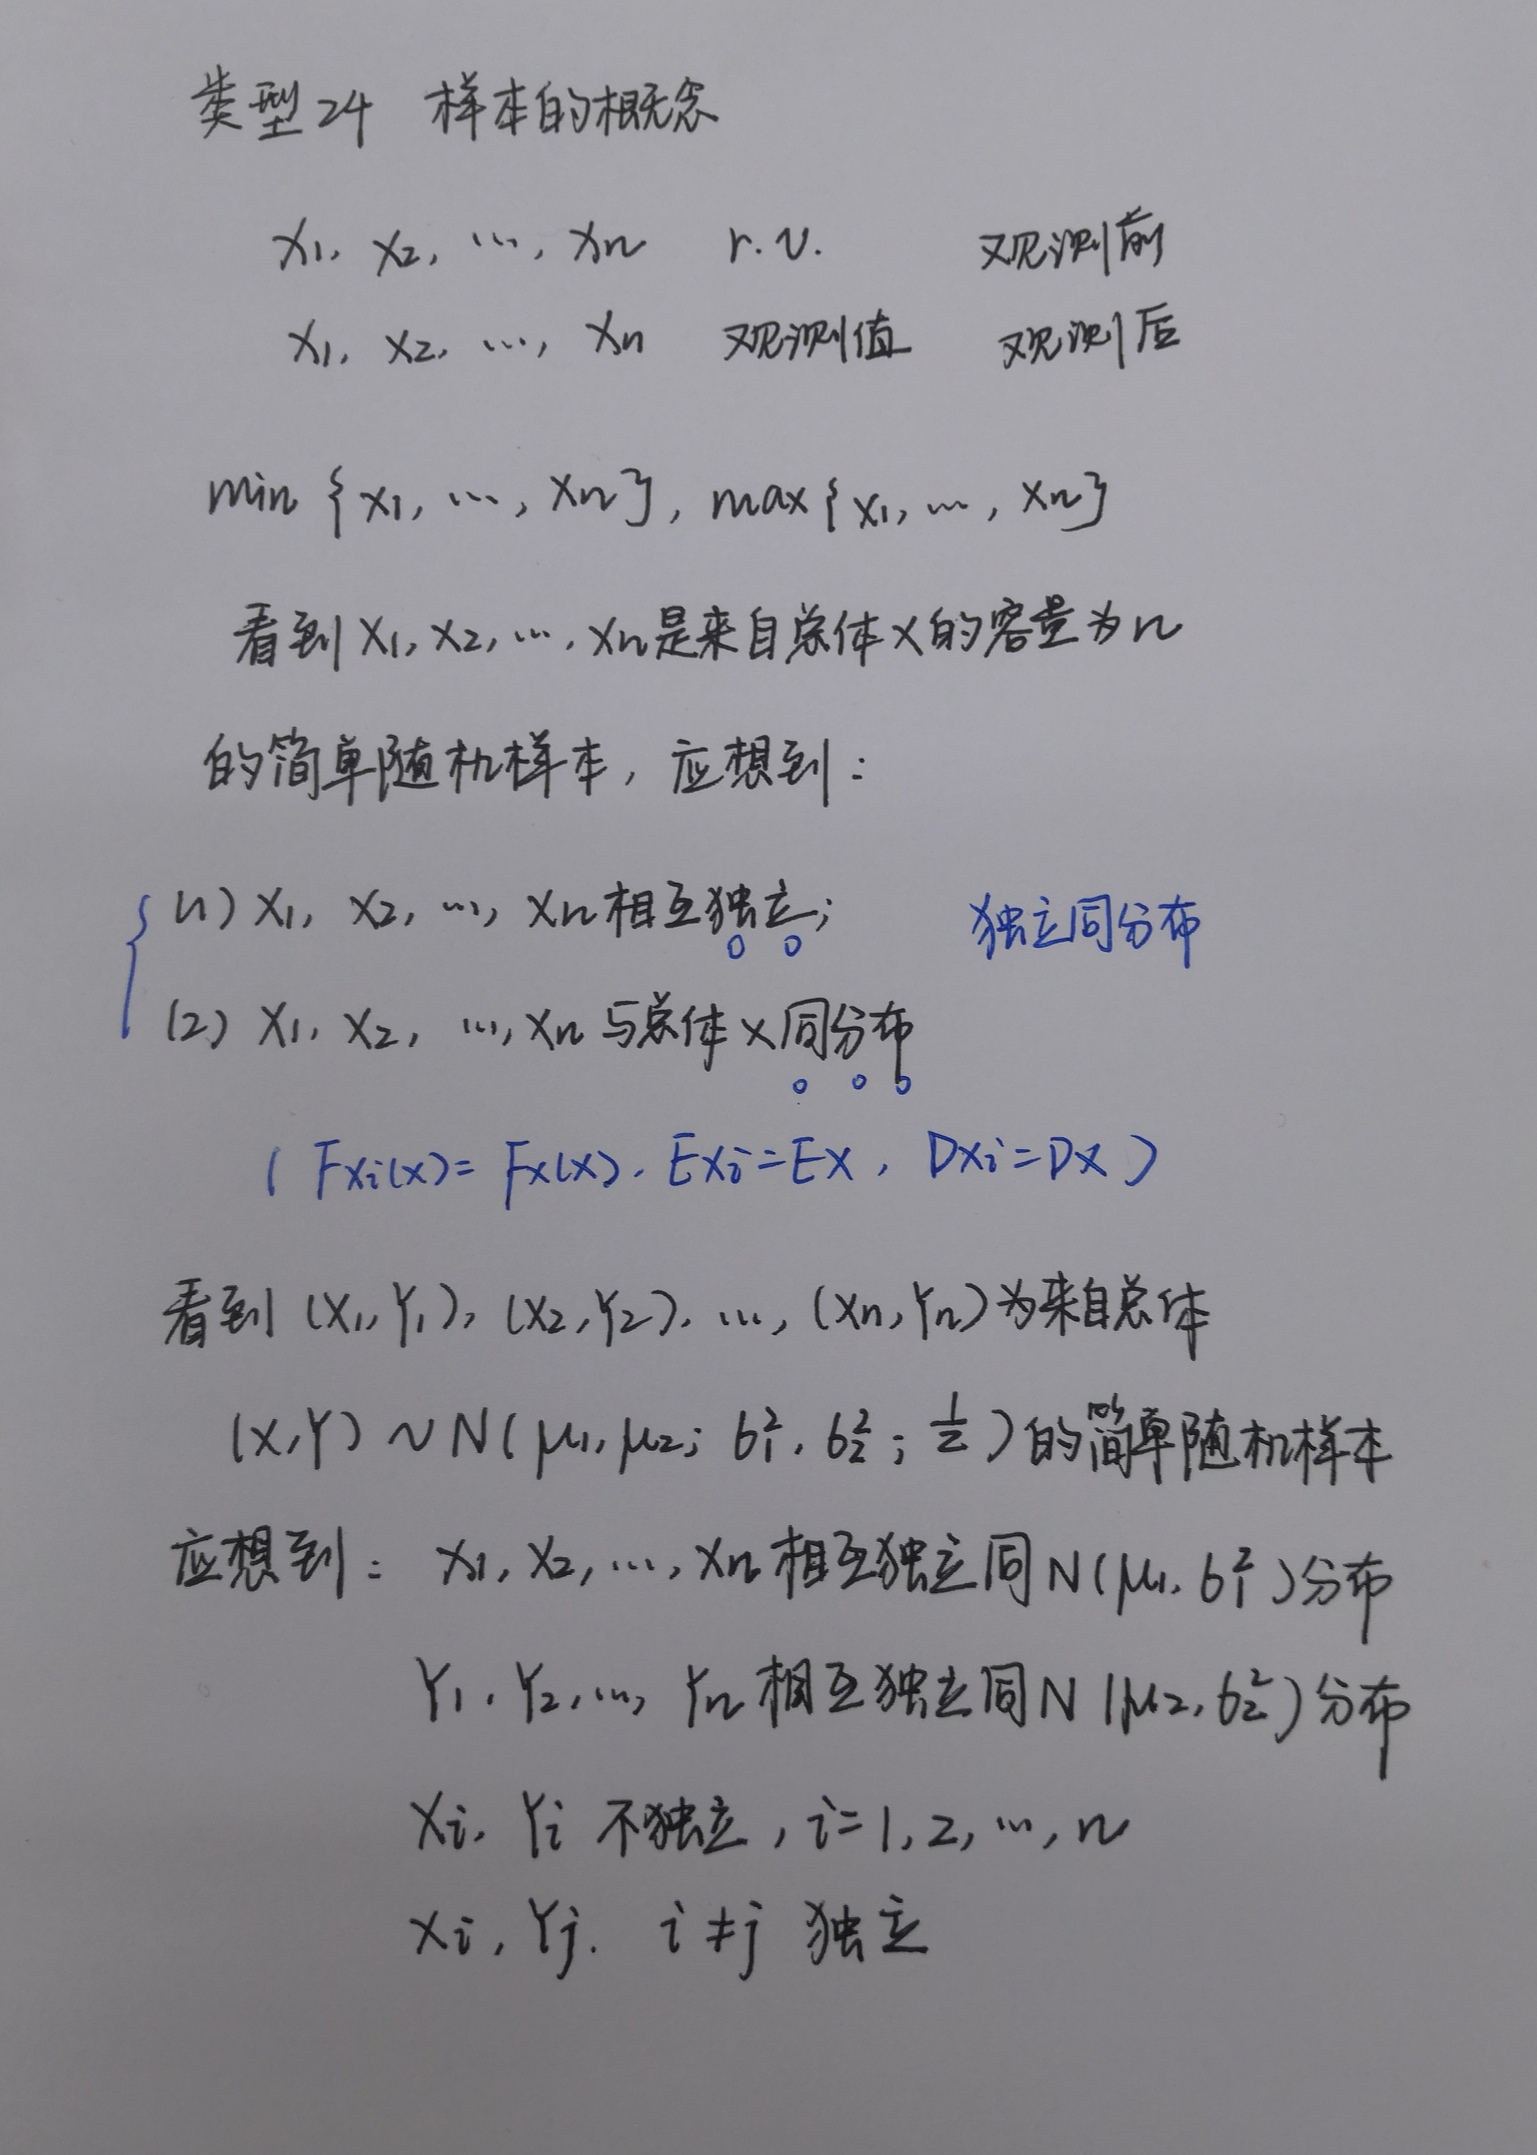 类型24 样本的概念
X1, X2, …, Xn r.v. 观测前
x1, x2, …, xn 观测值 观测后
min {X1, …, Xn}, max {X1, …, Xn}
看到 X1, X2, …, Xn是来自总体X的容量为n
的简单随机样本, 应想到:
(1) X1, X2, …, Xn相互独立; 独立同分布
(2) X1, X2, …, Xn 与总体X同分布
( FXi(x) = FX(x), EXi = EX, DXi = DX )
看到 (X1, Y1), (X2, Y2), …, (Xn, Yn) 为来自总体
(X, Y) ~ N(μ1, μ2; σ1², σ2²; 1/2) 的简单随机样本
应想到: X1, X2, …, Xn 相互独立同 N(μ1, σ1²) 分布
Y1, Y2, …, Yn 相互独立同 N(μ2, σ2²) 分布
Xi, Yi 不独立, i = 1, 2, …, n
Xi, Yj, i ≠ j 独立